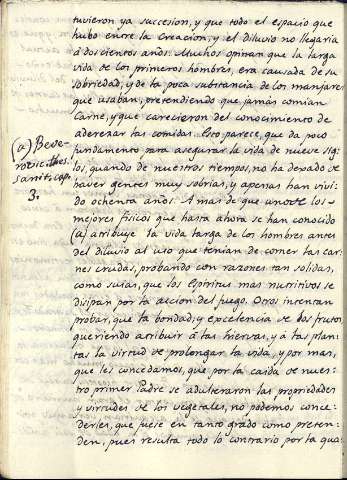 tuvieron ya succesion, y que todo el espacio que
hubo entre la Creacion, y el diluvio no llegaria
à doscientos años. Muchos opinan que la larga
vida de los primeros hombres, era causada de su
sobriedad, y de la poca substancia de los manjares
que usaban, pretendiendo que jamàs comian
Carne, y que carecieron del conocimiento de
aderezar las comidas. Esto parece, que da poco
fundamento para asegurar la vida de nueve sig
los, quando de nuestros tiempos, no ha dexado de
haver gentes muy sobrias, y apenas han vivi-
do ochenta años. A mas de que uno de los
mejores fisicos que hasta ahora se han conocido
(a) atribuye la vida larga de los hombres antes
del diluvio al uso que tenian de comer las car-
nes crudas, probando con razones tan solidas,
como suias, que los Espiritus mas nutritivos se
disipan por la accion del fuego. Otros intentan
probar, que la bondad, y excelencia de dos frutos
queriendo atribuir à las hiervas, y à las plan-
tas la virtud de prolongar la vida, y por mas,
que les concedamos, que por la caida de nues-
tro primer Padre se adulteraron las propiedades
y virtudes de los vegetales, no podemos conce-
derles, que fuese en tanto grado como preten-
den, pues resulta todo lo contrario por la qua
(a) Beve-
rovic. thes.
Sanit. cap.
3.